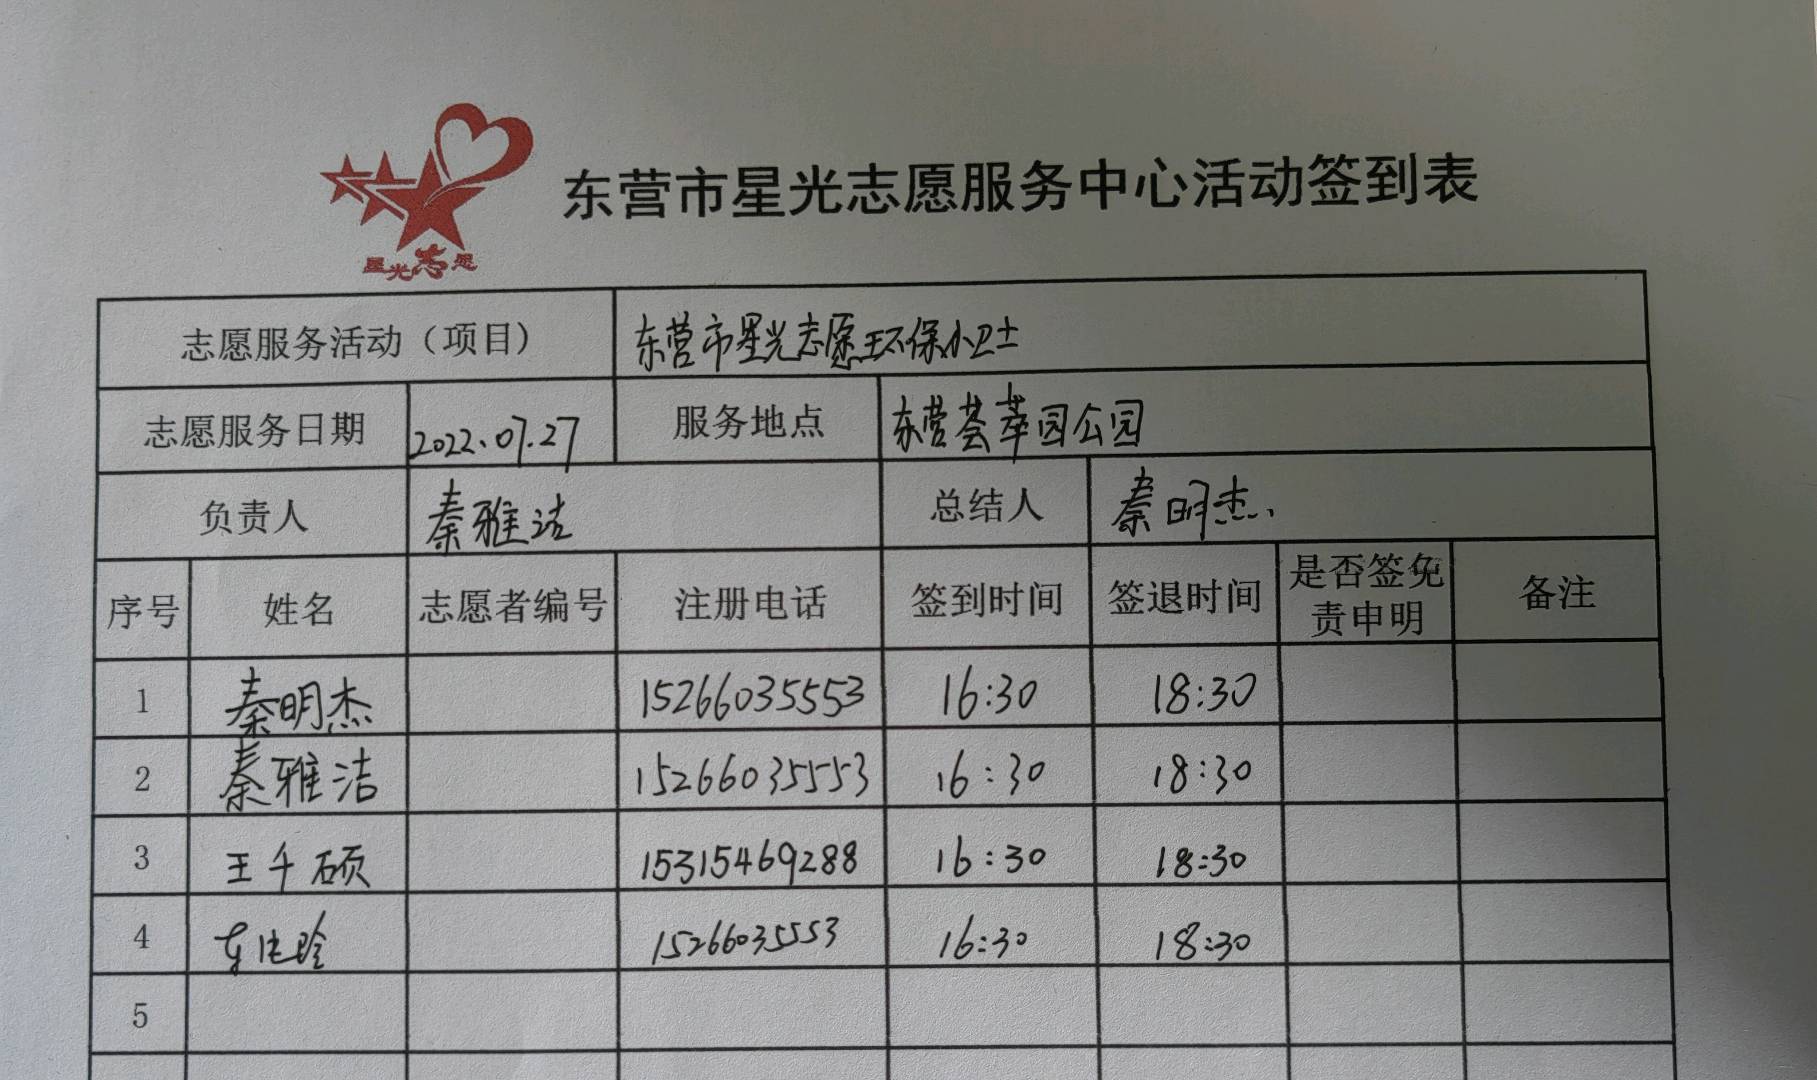 星光志愿
东营市星光志愿服务中心活动签到表
志愿服务活动（项目） 东营市星光志愿环保小卫士
志愿服务日期 2022.07.27 服务地点 东营荟萃园公园
负责人 秦雅洁 总结人 秦明杰
序号 姓名 志愿者编号 注册电话 签到时间 签退时间 是否签免责申明 备注
1 秦明杰 15266035553 16:30 18:30
2 秦雅洁 15266035553 16:30 18:30
3 王千硕 15315469288 16:30 18:30
4 15266035553 16:30 18:30
5